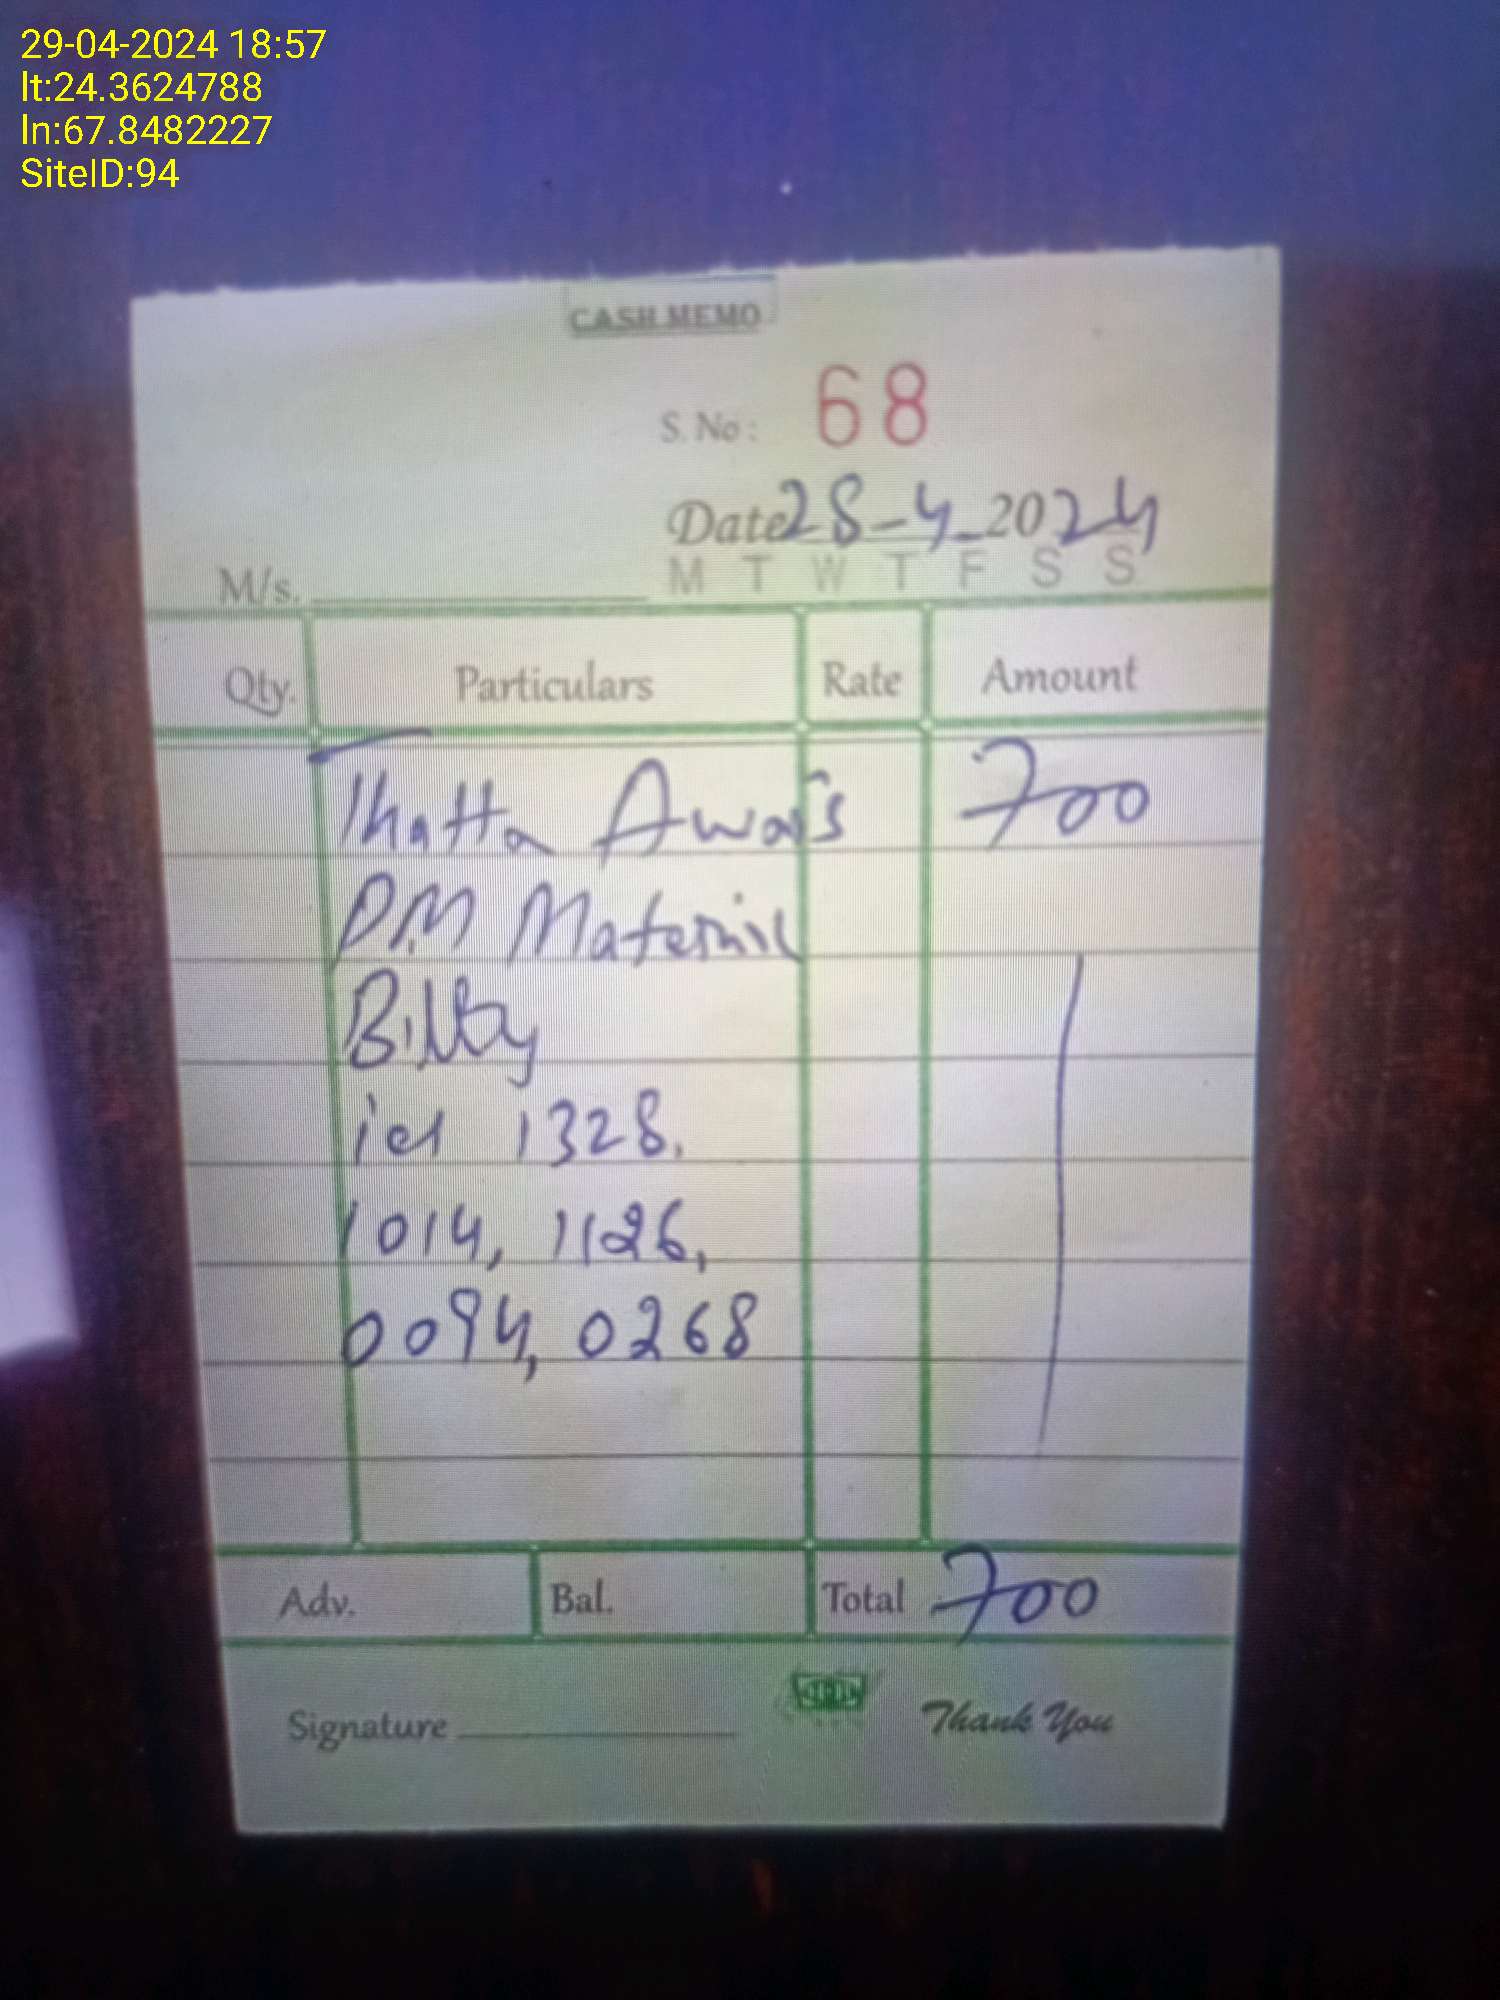 29-04-2024 18:57
lt:24.3624788
ln:67.8482227
SiteID:94
CASH MEMO
S. No: 68
Date 28-4-2024
M/s.
M T W T F S S
Qty. Particulars Rate Amount
Thatta Awais 700
PM Material
Bilty
id 1328,
1014, 1126,
0094, 0268
Adv. Bal. Total 700
Signature
Thank You